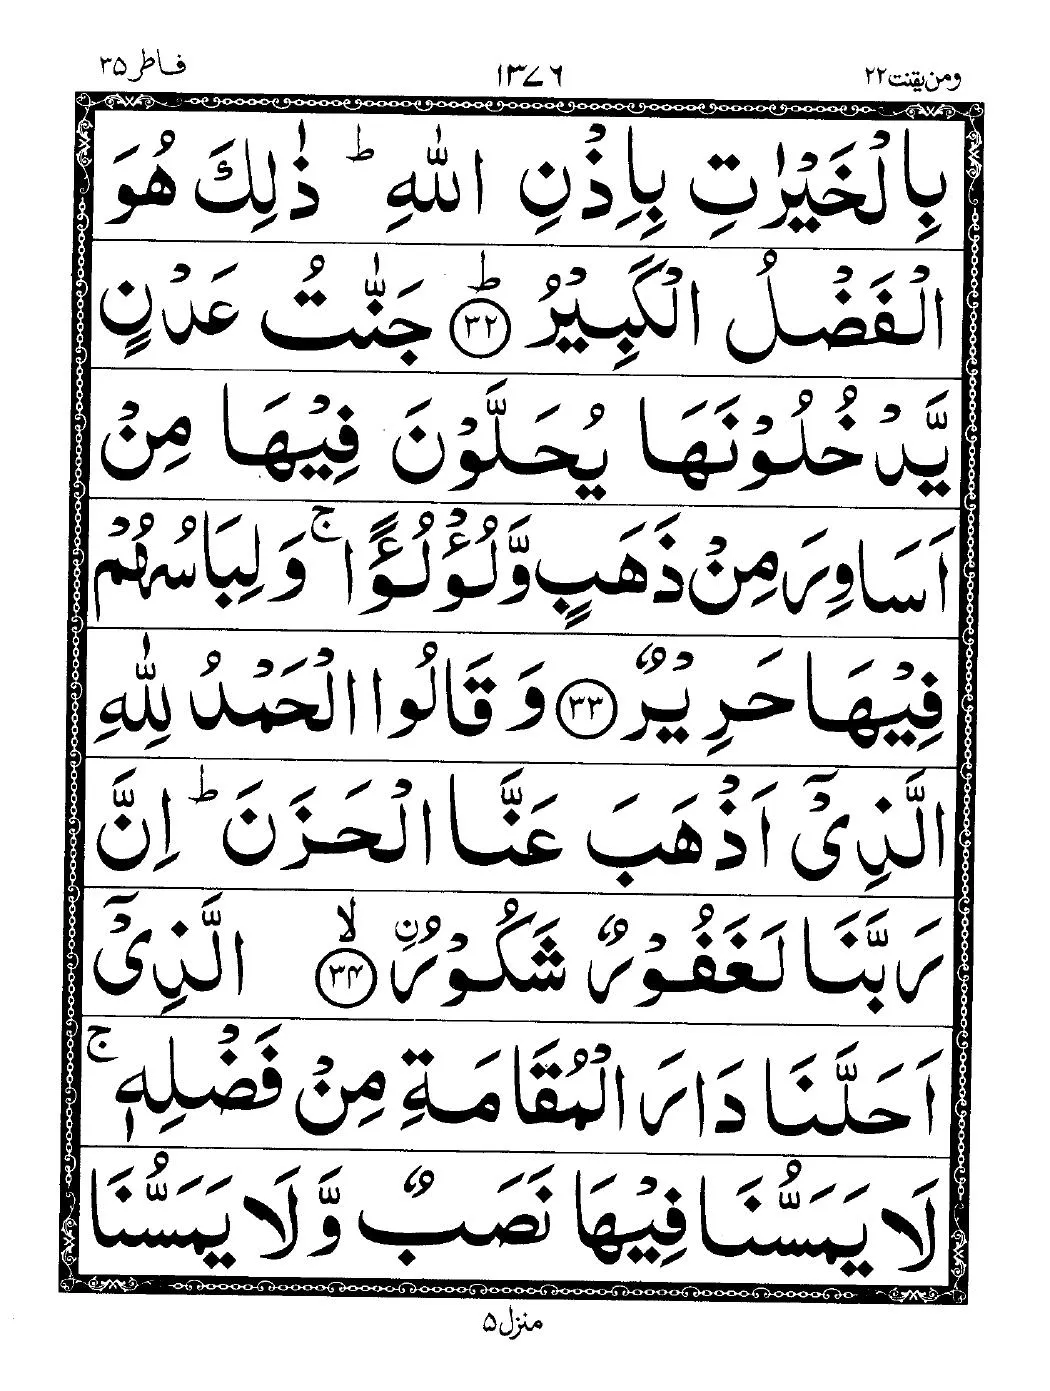 ومن یقنت ۲۲ ۱۳۷۶ فاطر ۳۵
بِالْخَيْرٰتِ بِاِذْنِ اللّٰهِ ؕ ذٰلِكَ هُوَ
الْفَضْلُ الْكَبِيْرُ ؕ ﴿۳۲﴾ جَنّٰتُ عَدْنٍ
يَّدْخُلُوْنَهَا يُحَلَّوْنَ فِيْهَا مِنْ
اَسَاوِرَ مِنْ ذَهَبٍ وَّلُؤْلُؤًا ۚ وَلِبَاسُهُمْ
فِيْهَا حَرِيْرٌ ﴿۳۳﴾ وَقَالُوا الْحَمْدُ لِلّٰهِ
الَّذِيْۤ اَذْهَبَ عَنَّا الْحَزَنَ ؕ اِنَّ
رَبَّنَا لَغَفُوْرٌ شَكُوْرُ ۨ ۙ ﴿۳۴﴾ الَّذِيْۤ
اَحَلَّنَا دَارَ الْمُقَامَةِ مِنْ فَضْلِهٖ ۚ
لَا يَمَسُّنَا فِيْهَا نَصَبٌ وَّلَا يَمَسُّنَا
منزل ۵